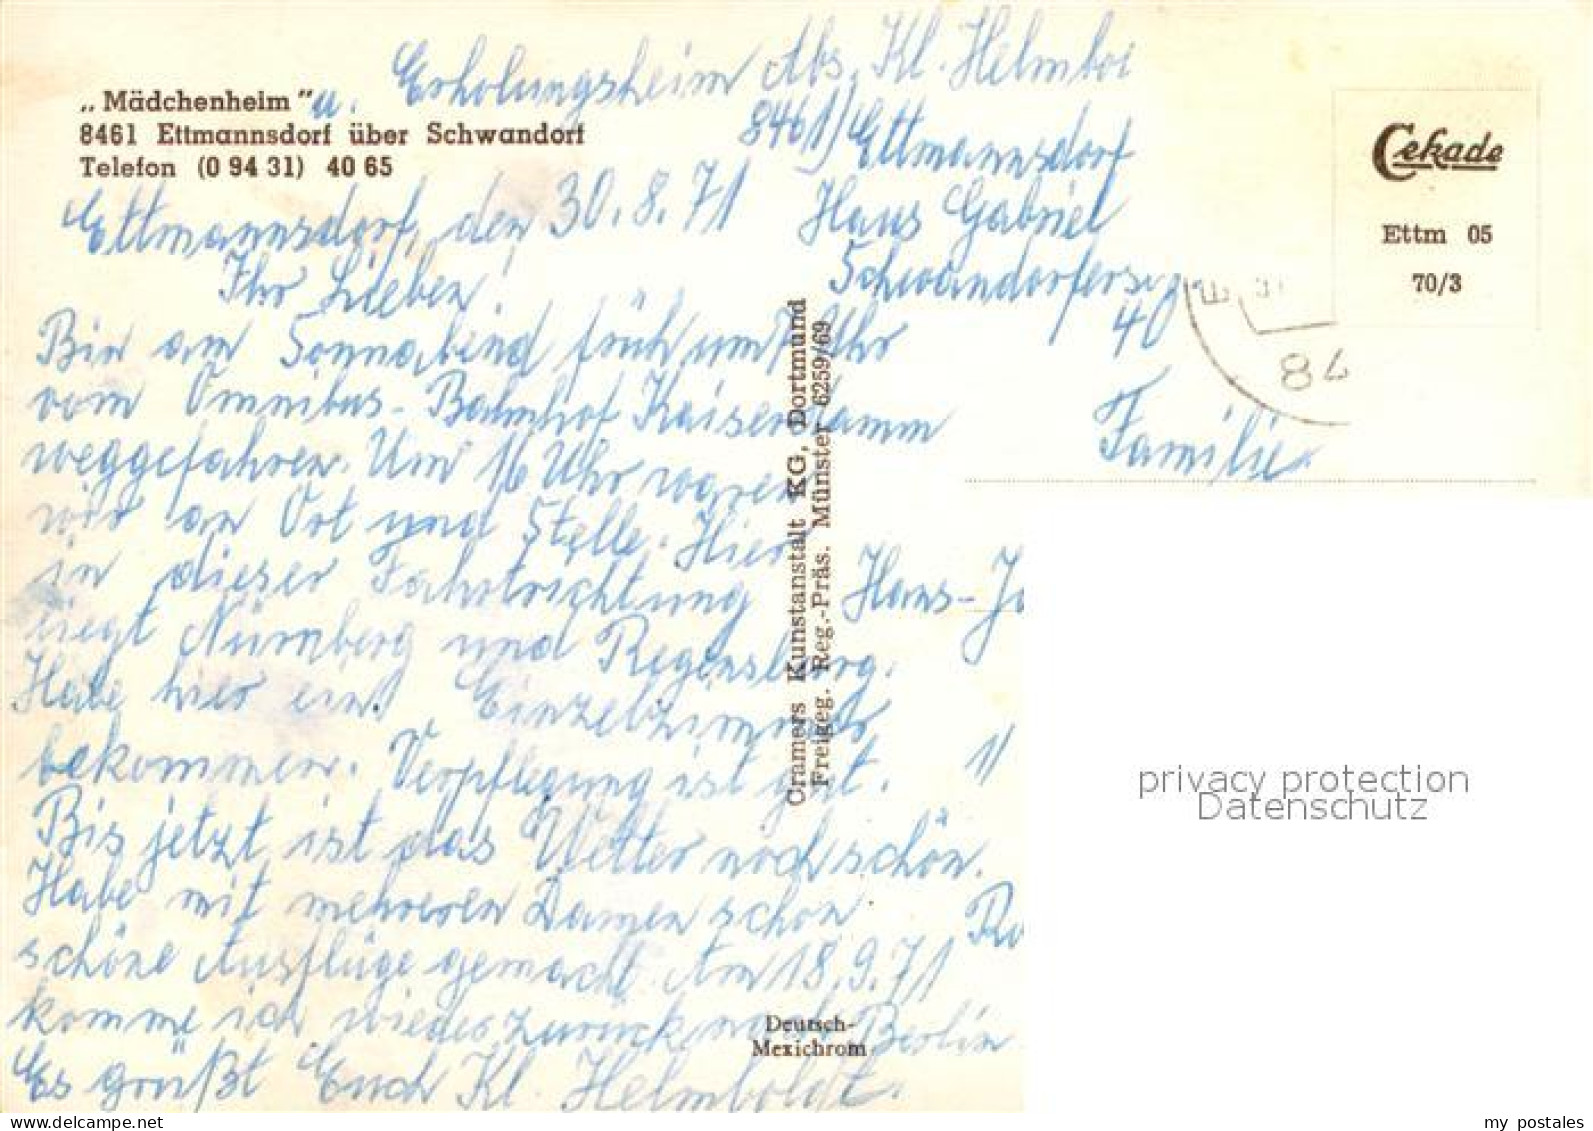 „Mädchenheim" u. Erholungsheim
8461 Ettmannsdorf über Schwandorf
Telefon (0 94 31) 40 65
Abs. Kl. Helmbol
8461) Ettmannsdorf
Haus Gabriel
Schwandorferstr
40
Ettmannsdorf, den 30.8.71
Ihr Lieben!
Bin am Sonnabend früh um 7 Uhr
vom Omnibus-Bahnhof Kaiserdamm
weggefahren. Um 16 Uhr waren
wir an Ort und Stelle. Hier
in dieser Fahrtrichtung
liegt Nürnberg und Regensburg.
Habe hier ein Einzelzimmer
bekommen. Verpflegung ist gut.
Bis jetzt ist das Wetter noch schön.
Habe mit mehreren Damen schon
schöne Ausflüge gemacht. Am 18.9.71
komme ich wieder zurück nach Berlin
Es grüßt Euch Kl. Helmboldt.
Cramers Kunstanstalt KG, Dortmund
Freigeg. Reg.-Präs. Münster 6259/69
Deutsch-
Mexichrom
Cekade
Ettm 05
70/3
84
Familie
Hans-J
11
Ro
privacy protection
Datenschutz
my postales